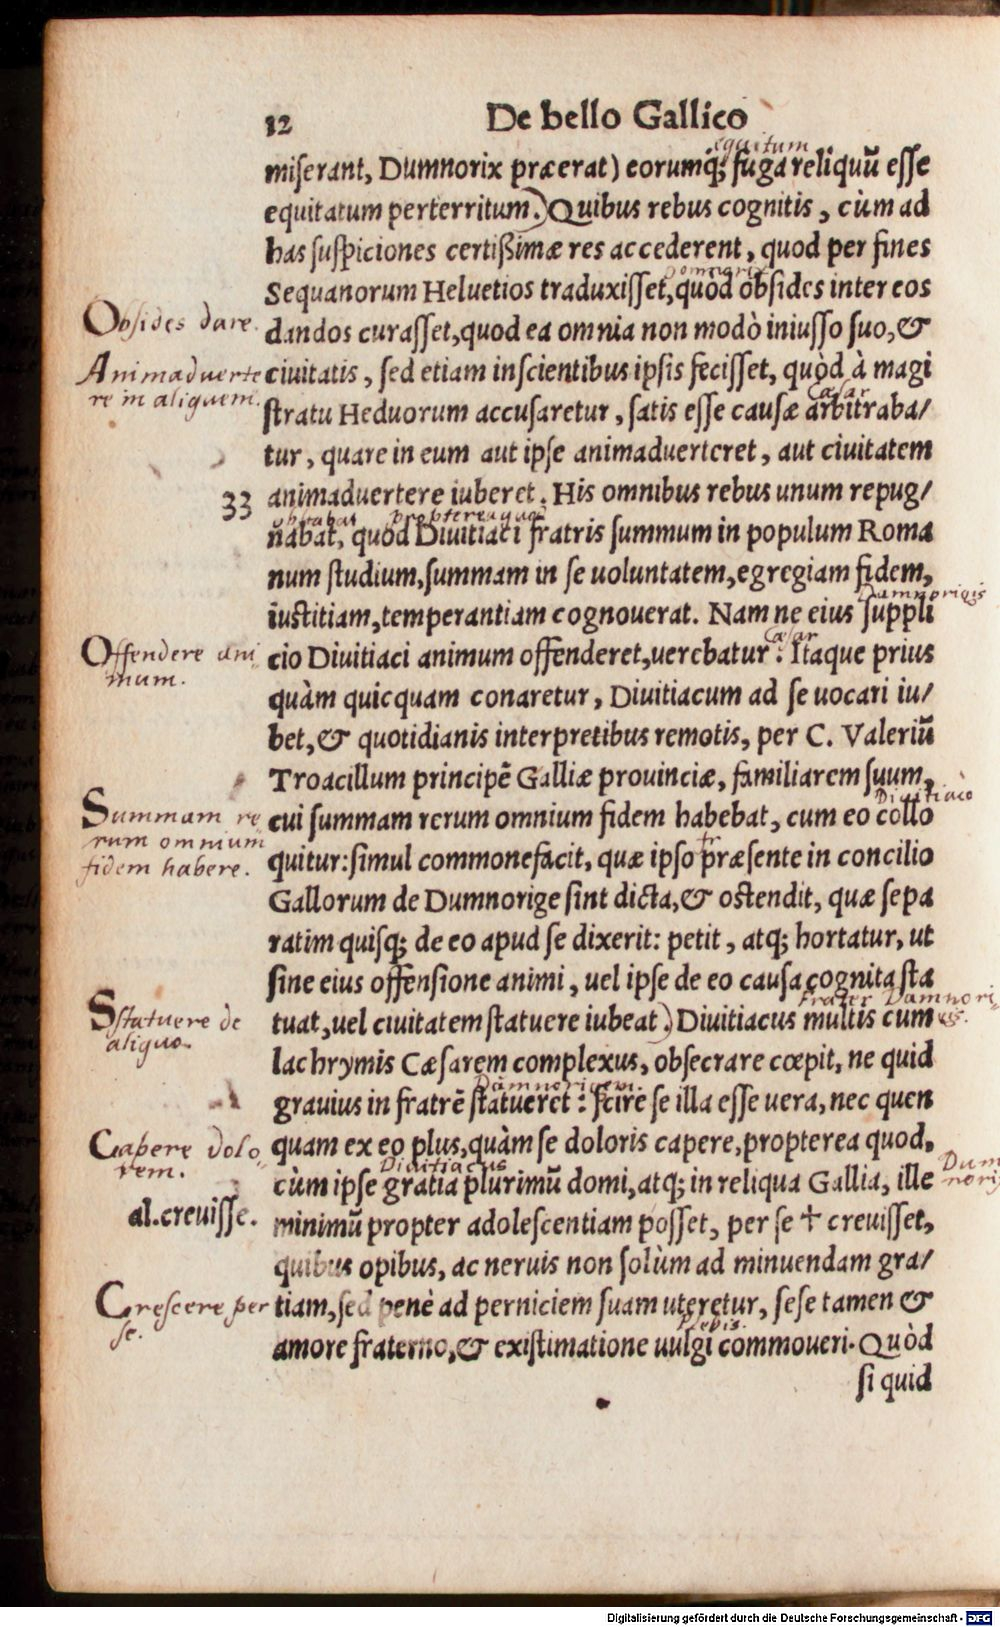 12 De bello Gallico
equitum
miserant, Dumnorix præerat) eorumq́; fuga reliquũ esse
equitatum perterritum.) Quibus rebus cognitis, cùm ad
has suspiciones certißimæ res accederent, quod per fines
Domnorix
Sequanorum Heluetios traduxisset, quòd obsides inter eos
Obsides dare.
dandos curasset, quod ea omnia non modò iniusso suo, &
Animaduerte
ciuitatis, sed etiam inscientibus ipsis fecisset, quòd à magi
re in aliquem.
Cæsar
stratu Heduorum accusaretur, satis esse causæ arbitraba/
tur, quare in eum aut ipse animaduerteret, aut ciuitatem
33
animaduertere iuberet. His omnibus rebus unum repug/
obstabat propterea quod
nabat, quòd Diuitiaci fratris summum in populum Roma
num studium, summam in se uoluntatem, egregiam fidem,
Damnorigis
iustitiam, temperantiam cognouerat. Nam ne eius suppli
Cæsar
Offendere ani
cio Diuitiaci animum offenderet, uerebatur. Itaque prius
mum.
quàm quicquam conaretur, Diuitiacum ad se uocari iu/
bet, & quotidianis interpretibus remotis, per C. Valeriũ
Troacillum principẽ Galliæ prouinciæ, familiarem suum,
Diuitiaco
Summam re
cui summam rerum omnium fidem habebat, cum eo collo
rum omnium
fidem habere.
quitur: simul commonefacit, quæ ipso præsente in concilio
Gallorum de Dumnorige sint dicta, & ostendit, quæ sepa
ratim quisq; de eo apud se dixerit: petit, atq; hortatur, ut
sine eius offensione animi, uel ipse de eo causa cognita sta
frater Damnori
gis.
Sstatuere de
tuat, uel ciuitatem statuere iubeat.) Diuitiacus multis cum
aliquo.
lachrymis Cæsarem complexus, obsecrare cœpit, ne quid
Damnorigem.
grauius in fratrẽ statueret: scire se illa esse uera, nec quen
Capere dolo
quam ex eo plus, quàm se doloris capere, propterea quod,
rem.
Diuitiacus
Dum
nori
cùm ipse gratia plurimũ domi, atq; in reliqua Gallia, ille
al. creuisse.
minimũ propter adolescentiam posset, per se † creuisset,
quibus opibus, ac neruis non solùm ad minuendam gra/
Crescere per
tiam, sed penè ad perniciem suam uteretur, sese tamen &
se.
plebis.
amore fraterno, & existimatione uulgi commoueri. Quòd
si quid
Digitalisierung gefördert durch die Deutsche Forschungsgemeinschaft - DFG